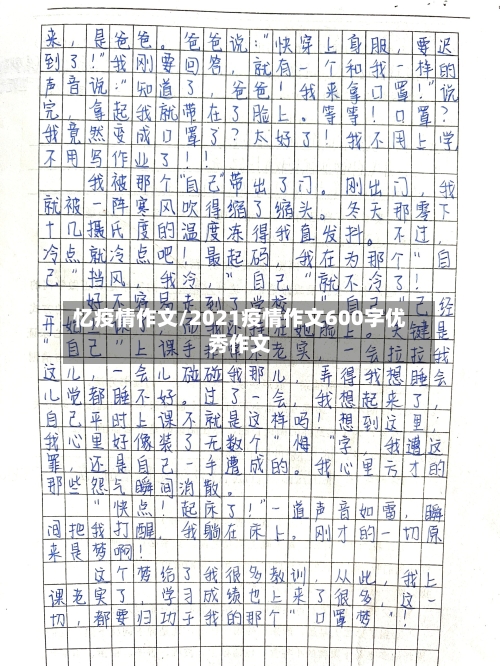 来，是爸爸。爸爸说："快穿上身服，要迟
到了！"我刚要回答，就有一个和我一样的
声音说："知道了，爸爸！我来拿口罩！"说
完，拿起我就带在了脸上。等等！口罩？
我竟然变成口罩了？太好了！我不用上学
不用写作业了！！
我被那个"自己"带出了门。刚出门，我
就被一阵寒风吹得缩了缩头。冬天那零下
十几摄氏度的温度冻得我直发抖。不过，
冷点就冷点吧！最起码，我在为那个"自
己"挡风，我冷，"自己"就不冷了！
好不容易走到了学校，"自己"已经
忆疫情作文/2021疫情作文600字优
秀作文
开始上
"自己"上课手
老实，一会拉拉我
这儿，一会儿碰碰我那儿，弄得我想睡会
儿觉都睡不好。过了一会，我想起来了，
自己平时上课不就是这样吗！想到这里，
我心里好像装了无数个"悔"字，我遭这
罪，还是自己一手遭成的。我心里方才的
那些怨气瞬间消散。
"快点！起床了！"一道声音如雷，瞬
间把我打醒，我躺在床上。刚才的一切原
来是梦啊！
这个梦给了我很多教训，从此，我上
课老实了，学习成绩也上来了很多，这一
切，都要归功于我的那个"口罩梦"！